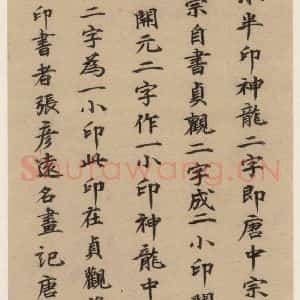 半印神龍二字即唐中宗
宗自書貞觀二字成二小印開
開元二字作一小印神龍中
二字為一小印此印在貞觀
印書者張彥遠名畫記唐
Shufawang.CN